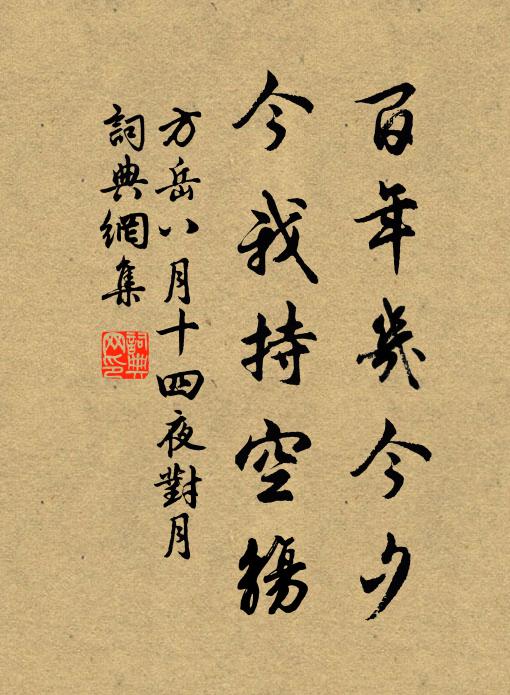 百年幾今夕
今我持空觴
方岳八月十四夜對月
詞典網集
詞典网印